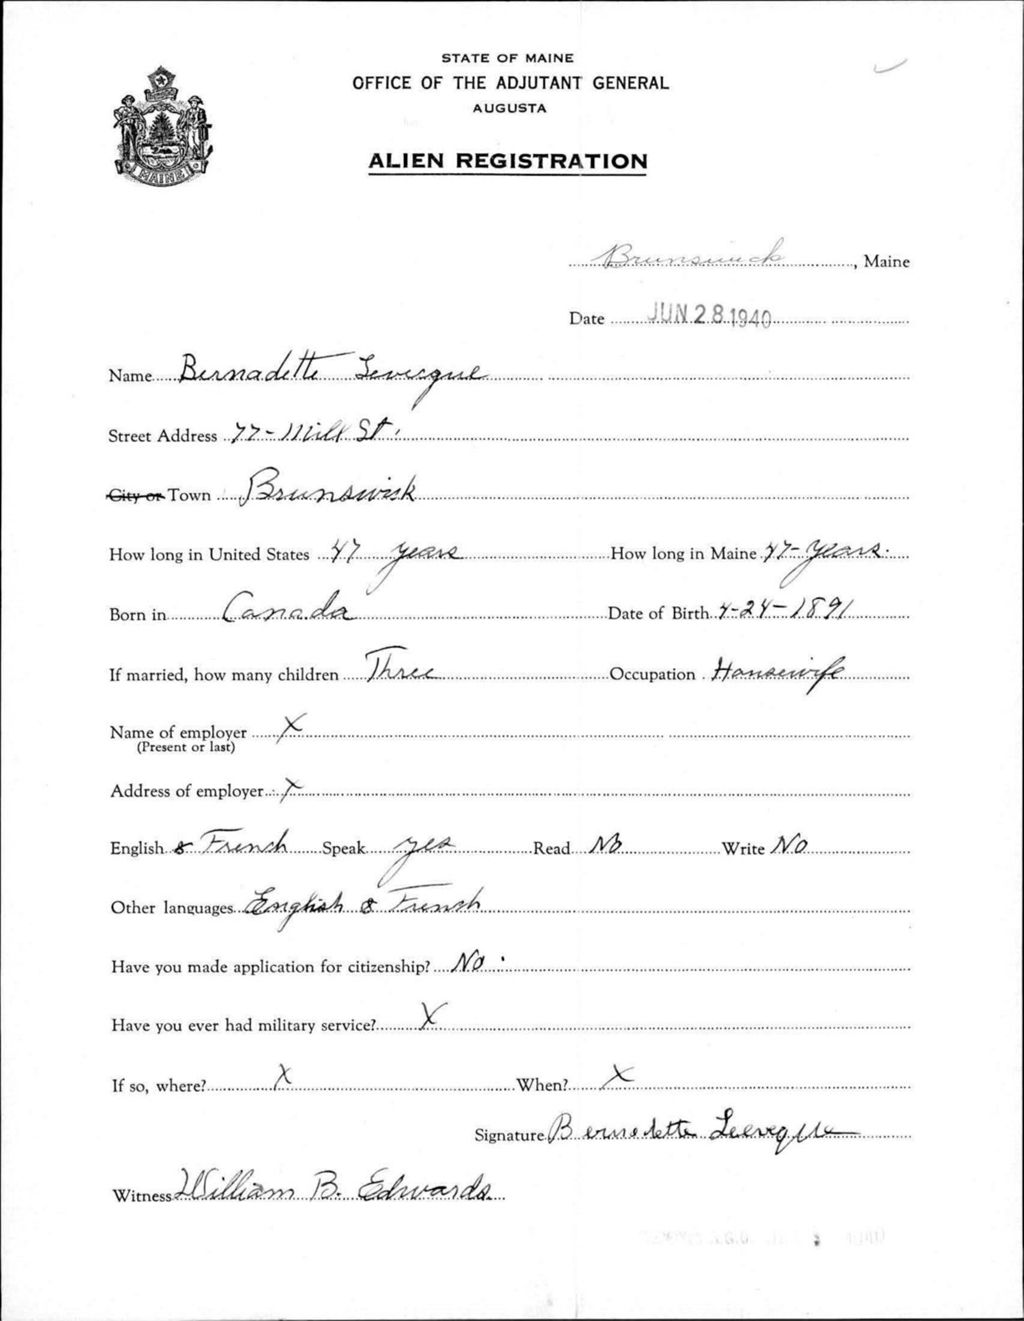 STATE OF MAINE
OFFICE OF THE ADJUTANT GENERAL
AUGUSTA
ALIEN REGISTRATION
MAINE
Brunswick, Maine
Date JUN 28 1940
Name Bernadette Levecque
Street Address 77 - Mill St.
City or Town Brunswick
How long in United States 47 years How long in Maine 47 - years.
Born in Canada Date of Birth 4-24-1891
If married, how many children Three Occupation Housewife
Name of employer X
(Present or last)
Address of employer X
English & French Speak yes Read No Write No
Other languages English & French
Have you made application for citizenship? No.
Have you ever had military service? X
If so, where? X When? X
Signature Bernadette
Witness William B. Edwards